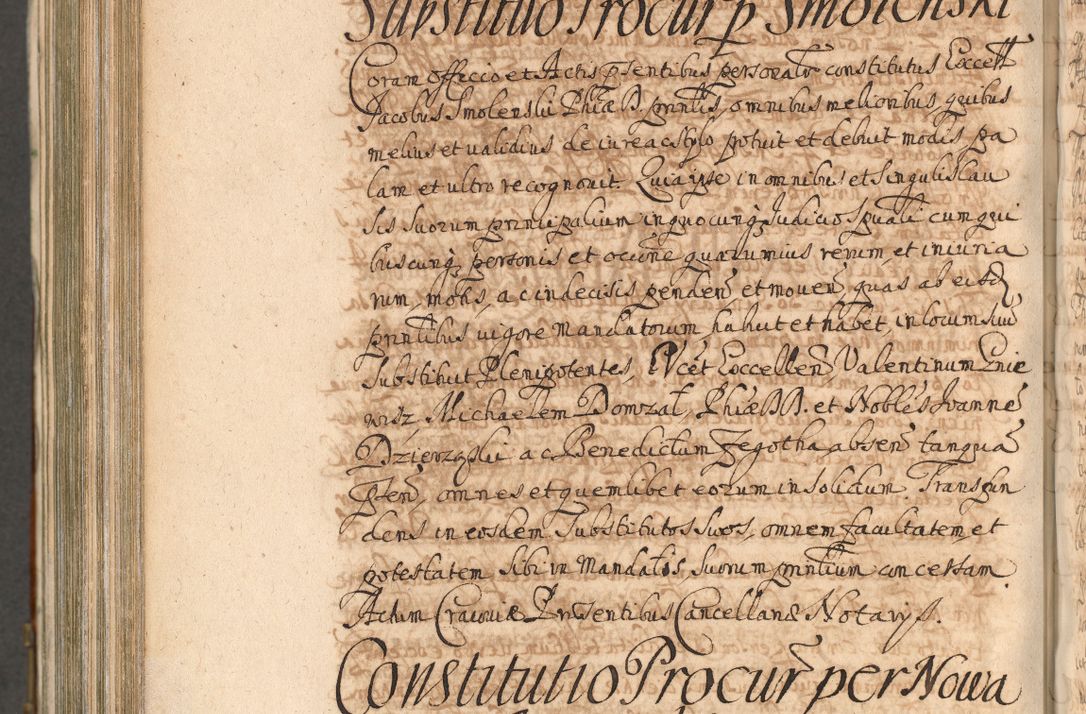 Substitutio Procur̃ p Smolenski
Coram Officio et Actis p̃sentibus personalr̃ constitutus Excell
Jacobus Smolenski Phiæ B. pnnl̃is, omnibus melioribus, quibus
melius et validius de iure ac stylo potuit et debuit modis pa
lam et ultro recognovit. Quia ipse in omnibus et singulis Cau
sis suorum principalium in quocunq; Judicio Spuãli cum qui
buscunq; personis et occ̃ione quarumvis rerum et iniuria
rum, motis, ac indecisis penden̄ et moven̄, quas ab eisd̃
pnnl̃ibus vigore Mandatorum habuit et habet, in locum suũ
Substituit Plenipotentes,
Excellen̄, Valentinum Gnie
wisz, Michaelem Dowzat, Phiæ BB. et Nobles Joannẽ
Dzierzyski ac Benedictum Zegotha absen̄ tanquã
p̃ten̄, omnes et quemlibet eorum in solidum. Transfun
dens in eosdem Substitutos suos, omnem facultatem et
potestatem sibi in Mandatis suorum pnnl̃ium concessam.
Actum Cracoviæ Præsentibus Cancellariæ Notarijs.
Constitutio Procur̃ per Nowa